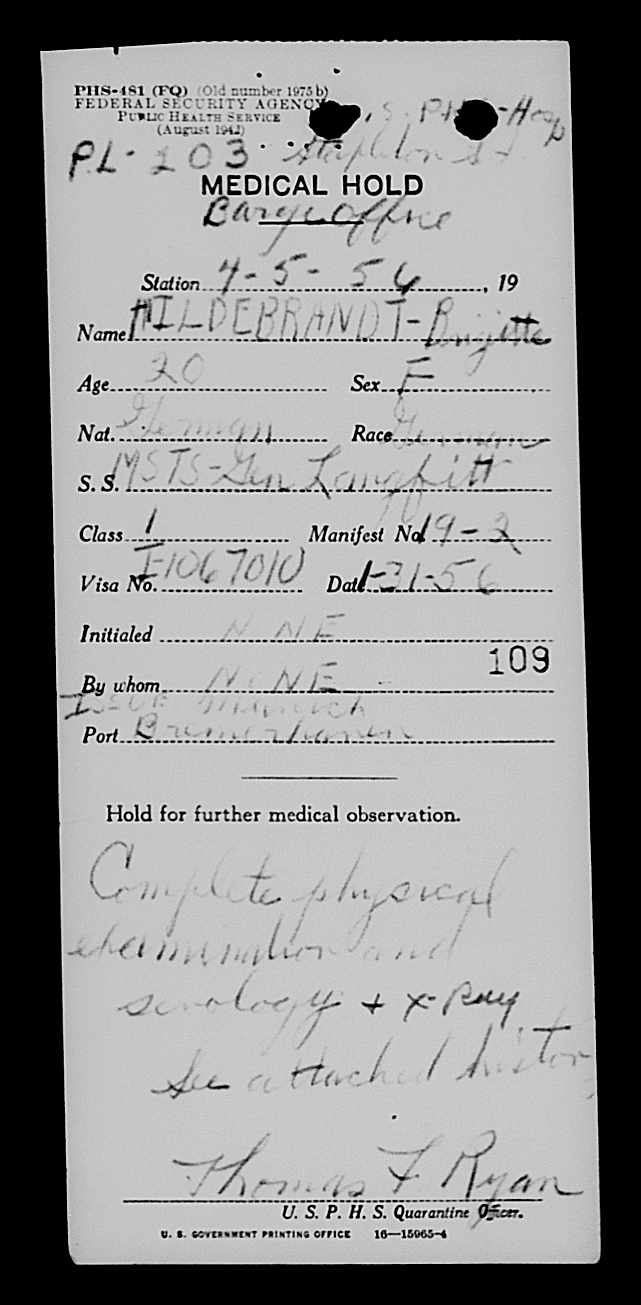 PHS-481 (FQ) (Old number 1975 b)
FEDERAL SECURITY AGENCY
PUBLIC HEALTH SERVICE
(August 1942)
S. PHS-Hosp
P.L- 103 Stapleton S. I.
MEDICAL HOLD
Barge Office
Station 4-5-56, 19
Name HILDEBRANDT-Brigitte
Age 20 Sex F
Nat. German Race German
S. S. MSTS-Gen Langfitt
Class 1 Manifest No 19-2
Visa No. I-1067010 Date 1-31-56
Initialed NONE
109
By whom NONE
ISSUE Munich
Port Bremerhaven
Hold for further medical observation.
Complete physical
examination and
serology + X-Ray
See attached history
Thomas F Ryan
U. S. P. H. S. Quarantine Officer.
U. S. GOVERNMENT PRINTING OFFICE 16—15965-4